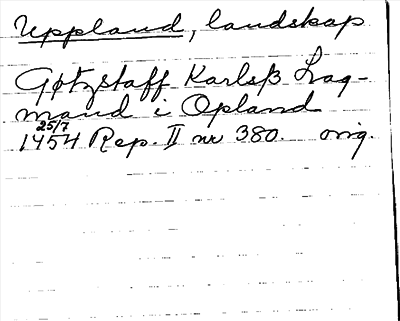 Uppland, landskap
Gøtzstaff Karlsß Lag-
mand i Opland
25/7
1454 Rep. II nr 380. orig.